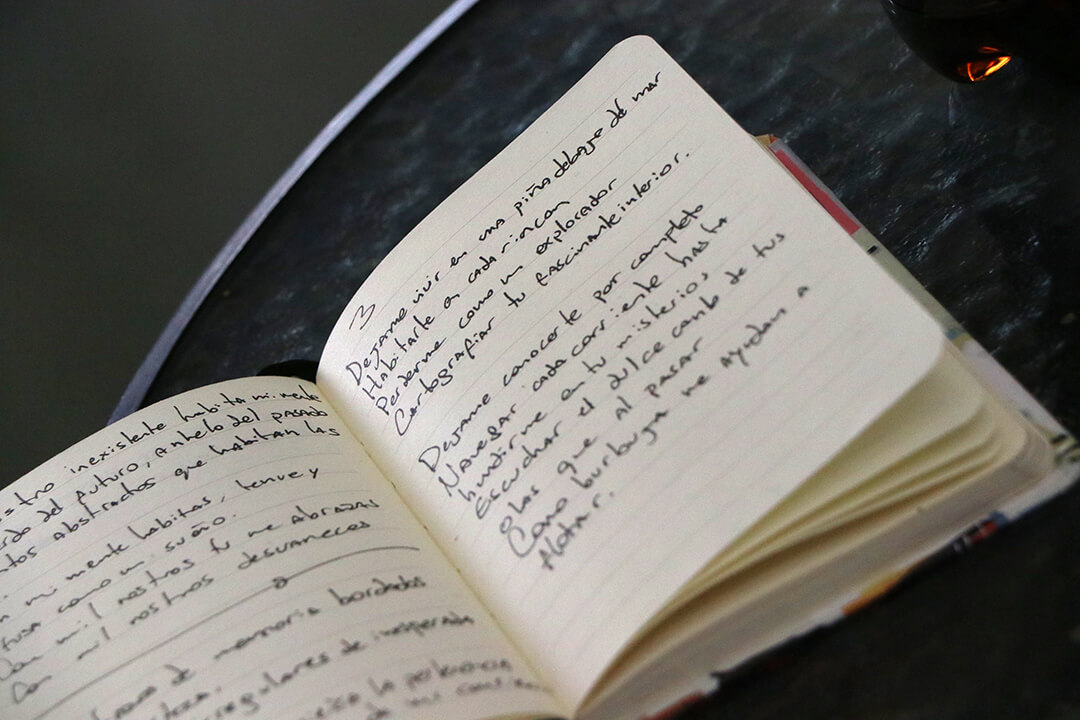 inexistente habita mi mente
del futuro, anhelo del pasado
abstractos que habitan las
mi mente habitas, tenue y
como un sueño.
Con mil rostros tu me abrazas
Con mil rostros desvaneces
de memoria bordados
irregulares de inesperada
la pertenencia
de mi
3
Dejame vivir en una piña debajo dél mar
Habitarte en cada rincon
Perderme como un explorador
Cartografiar tu fascinante interior.
Dejame conocerte por completo
Navegar cada corriente hasta
hundirme en tu misterios
Escuchar el dulce canto de tus
olas que al pasar
Como burbuja me ayudan a
flotar.